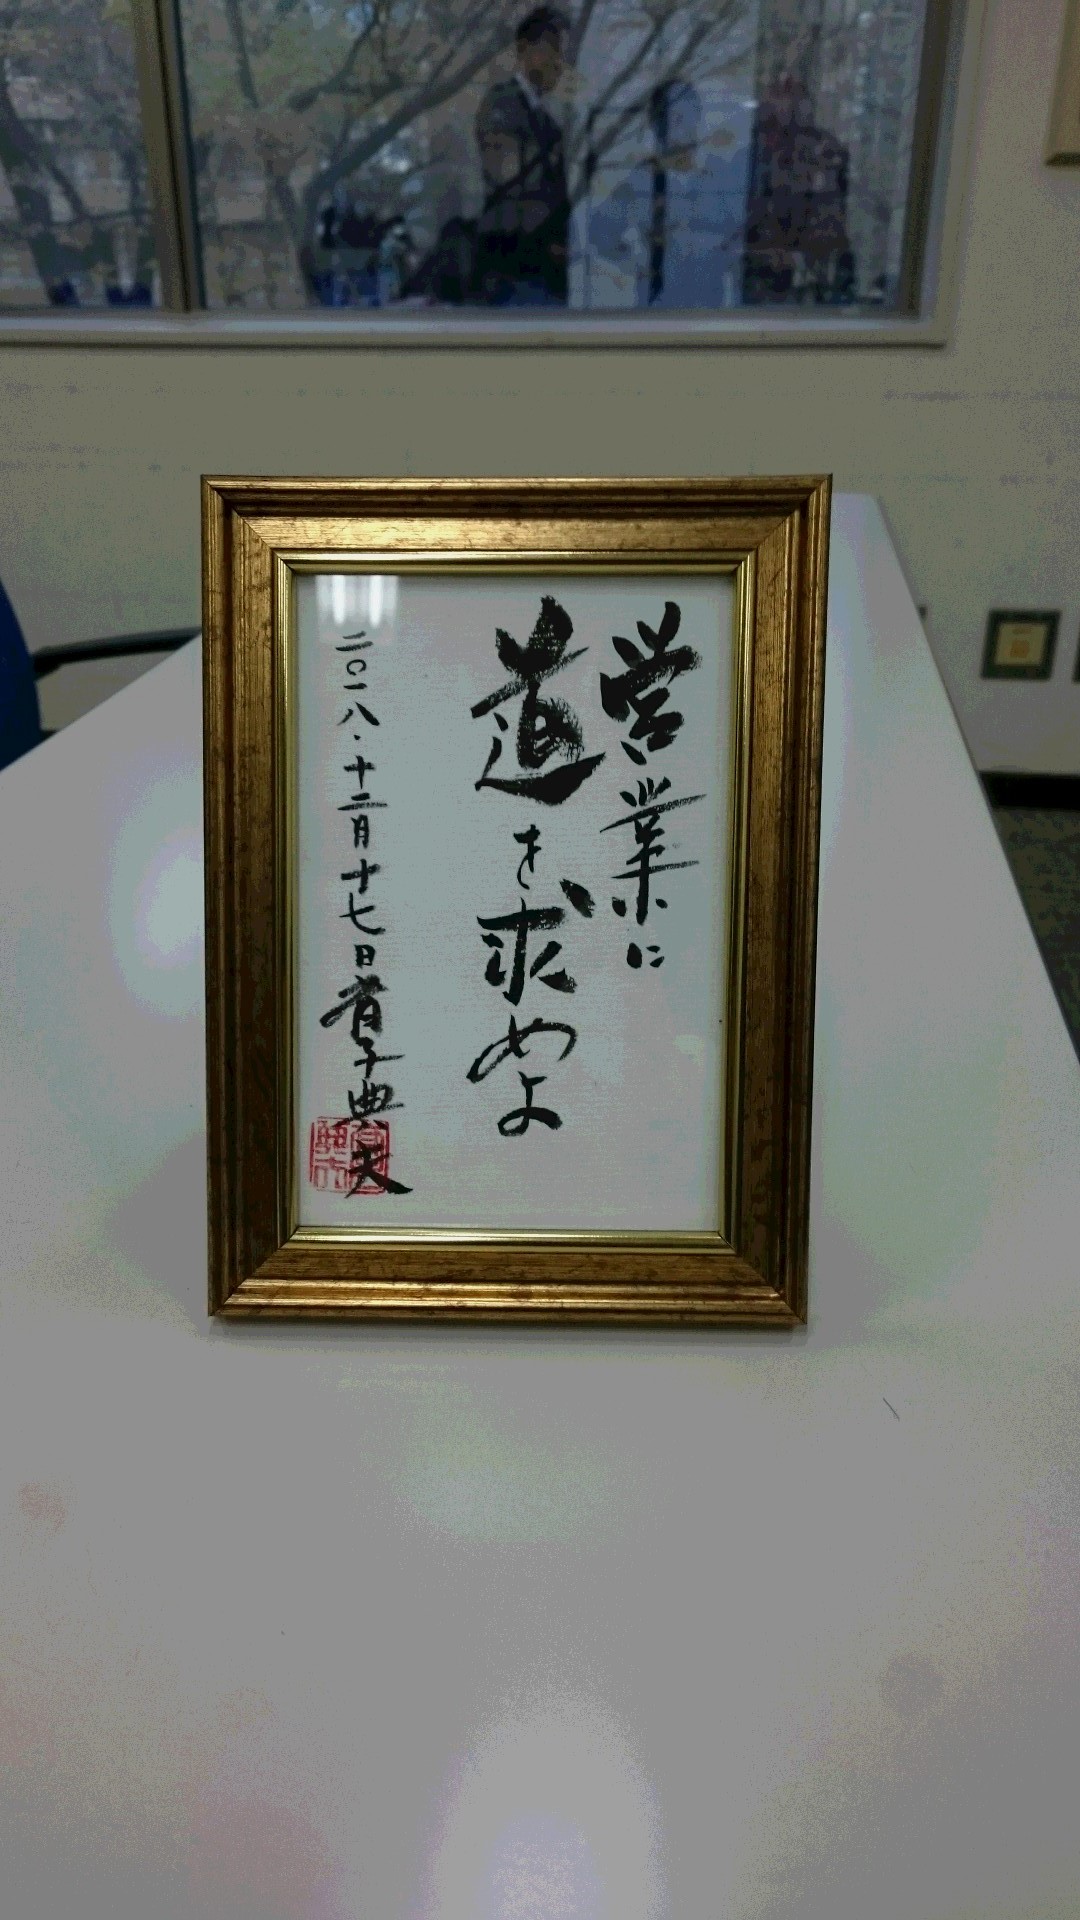 営業に
道を求めよ
二〇一八・十二月十七日 省子典夫